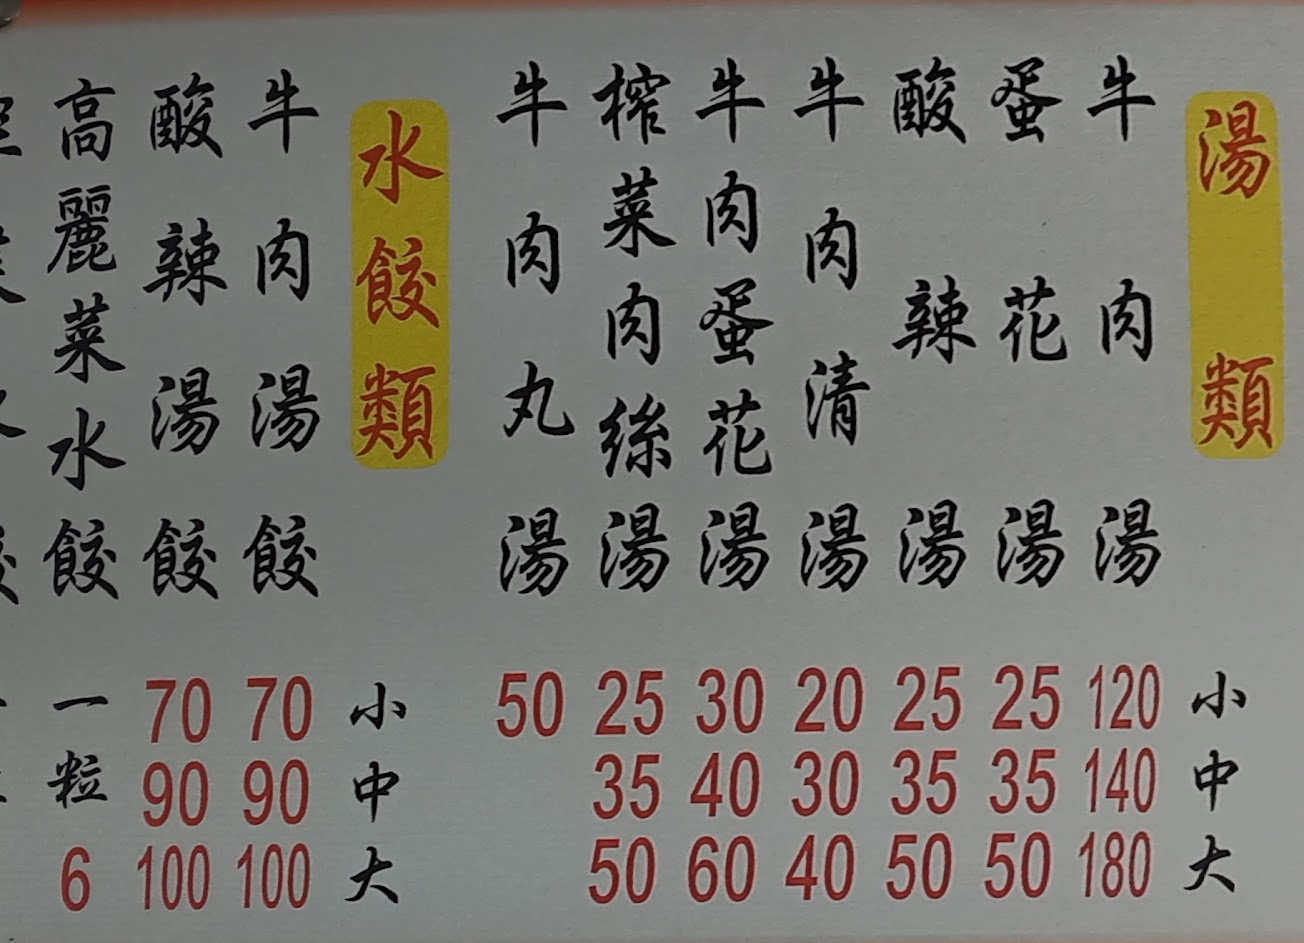 湯類
小
中
大
牛肉湯
120
140
180
蛋花湯
25
35
50
酸辣湯
25
35
50
牛肉清湯
20
30
40
牛肉蛋花湯
30
40
60
榨菜肉絲湯
25
35
50
牛肉丸湯
50
水餃類
小
中
大
牛肉湯餃
70
90
100
酸辣湯餃
70
90
100
高麗菜水餃
一粒
6